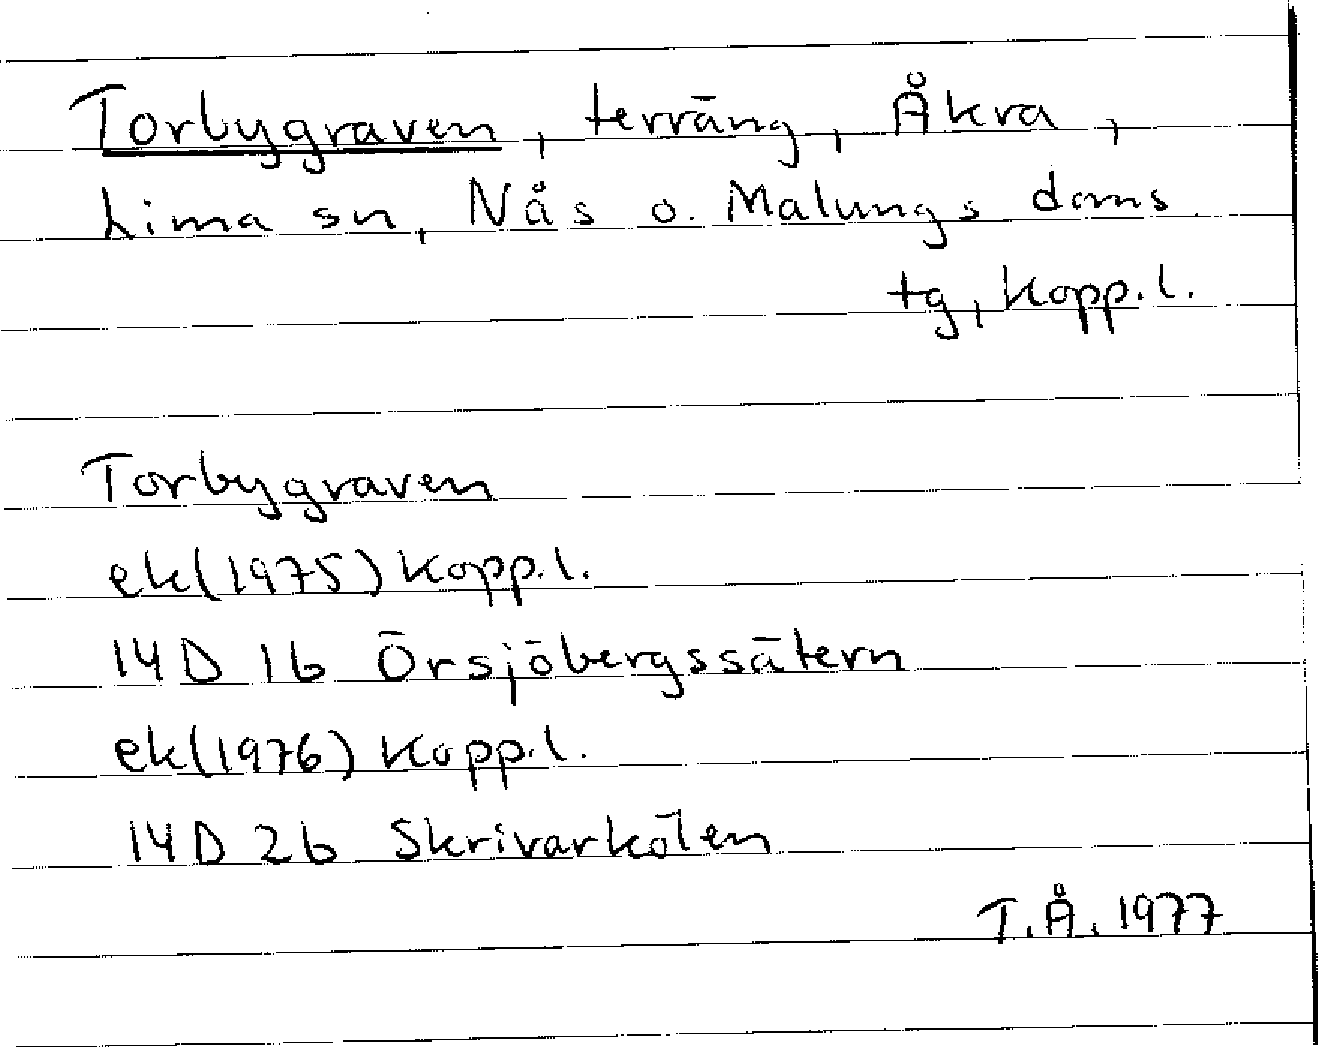 Torbygraven, terräng, Åkra,
Lima sn, Nås o. Malungs doms.
tg, Kopp.l.
Torbygraven
ek(1975) Kopp.l.
14D 1b Örsjöbergssätern
ek(1976) Kopp.l.
14D 2b Skrivarkölen
T.Å. 1977